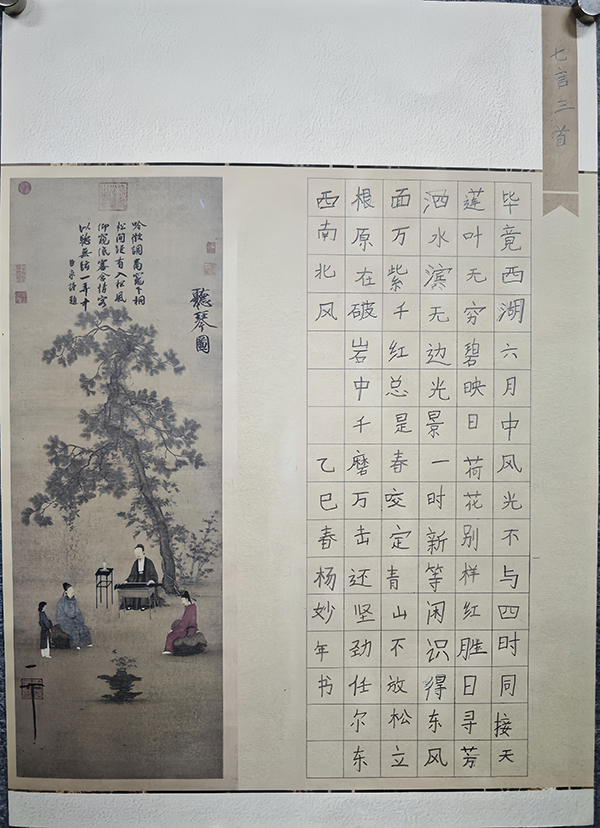 七言三首
毕竟西湖六月中风光不与四时同接天
莲叶无穷碧映日荷花别样红胜日寻芳
泗水滨无边光景一时新等闲识得东风
面万紫千红总是春咬定青山不放松立
根原在破岩中千磨万击还坚劲任尔东
西南北风 乙巳春杨妙年书
聽琴圖
吟徵調商竈下桐
松間疑有入松風
仰窺低審含情客
以聽無絃一弄中
臣京謹題